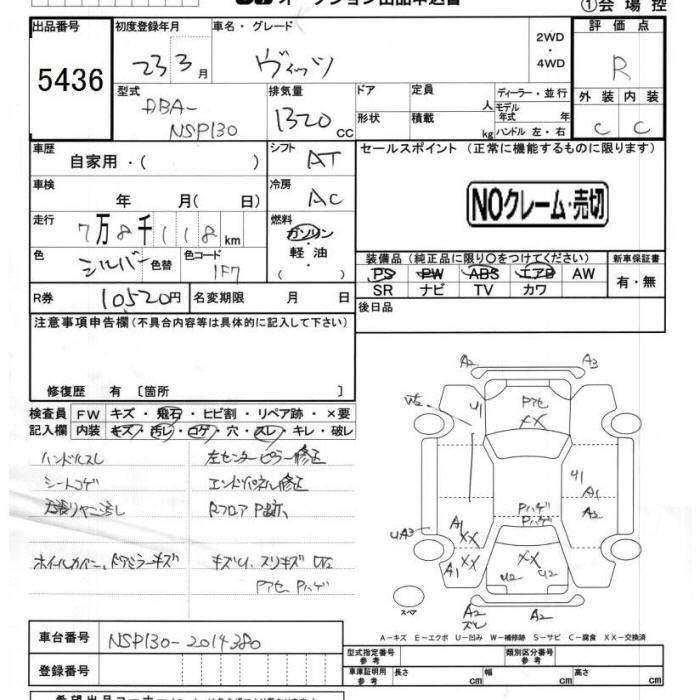 オークション出品申込書
①会場控
出品番号 初度登録年月 車名・グレード 評価点
5436 23 3月 ヴィッツ 2WD・4WD R
型式 排気量 ドア 定員 人 ディーラー・並行 外装 内装
DBA-NSP130 1320cc 形状 積載 kg モデル年式 年 ハンドル 左・右 C C
車歴 自家用・( ) シフト AT セールスポイント (正常に機能するものに限ります)
車検 年 月( 日) 冷房 AC
NOクレーム・売切
走行 7万8千118km 燃料 ガソリン・軽油・( )
色 シルバー 色替 色コード 1F7
装備品(純正品に限り○をつけてください) 新車保証書
PS PW ABS エアB AW 有・無
SR ナビ TV カワ
R券 10520円 名変期限 月 日
後日品
注意事項申告欄(不具合内容等は具体的に記入して下さい)
修復歴 有〔箇所 〕
検査員 FW キズ・飛石・ヒビ割・リペア跡・×要
記入欄 内装 キズ・汚レ・コゲ・穴・スレ・キレ・破レ
ハンドルスレ 左センターピラー修正
シートコゲ エンドパネル修正
Rフロア
ホイールカバー、ドアミラーキズ キズU、スリキズ W2
Pアセ Pハゲ
A2 A3
W2 U1 Pアセ XX
U1 A1
Pハゲ Pハゲ A2
UA3 A1 XX XX
A1 XX U2 U2
スペア A2 ズレ A2
A-キズ E-エクボ U-凹み W-補修跡 S-サビ C-腐食 XX-交換済
車台番号 NSP130-2014380
型式指定番号 参考 類別区分番号 参考
登録番号 車庫証明用 参考 長さ cm 幅 cm 高さ cm